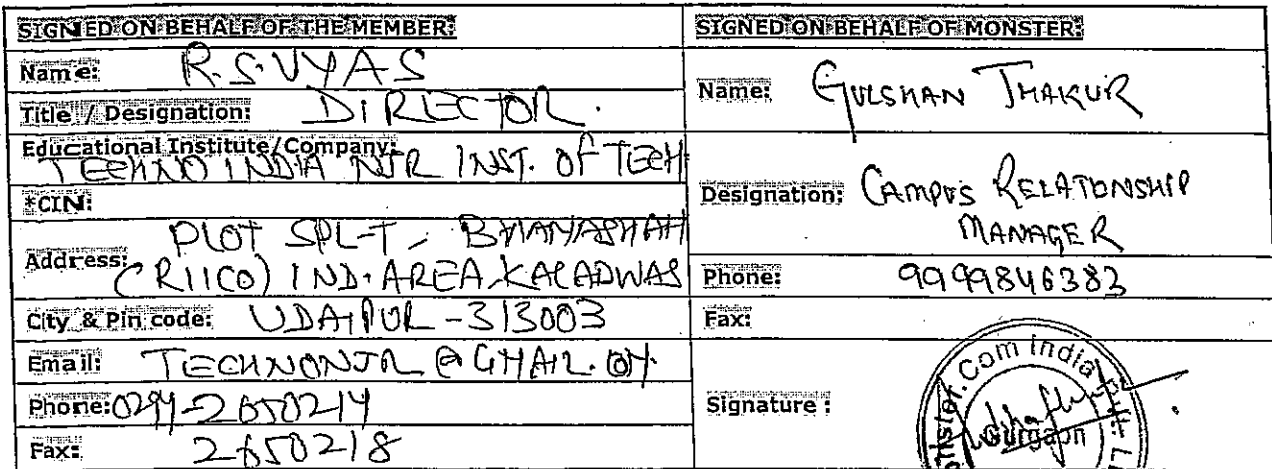 SIGNED ON BEHALF OF THE MEMBER:
Name: R.S.VYAS
Title / Designation: DIRECTOR.
Educational Institute/Company:
TECHNO INDIA NJR INST. OF TECH
*CIN:
PLOT SPL-T, BHAMASHAH
Address: (RIICO) IND. AREA, KALADWAS
City & Pin code: UDAIPUR - 313003
Email: TECHNONJR @ GMAIL.
Phone: 0294-2650214
Fax: 2650218
SIGNED ON BEHALF OF MONSTER:
Name: GULSHAN THAKUR
Designation: CAMPUS RELATIONSHIP
MANAGER
Phone: 9999846383
Fax:
Signature :
.Com India Pvt.
Gurgaon